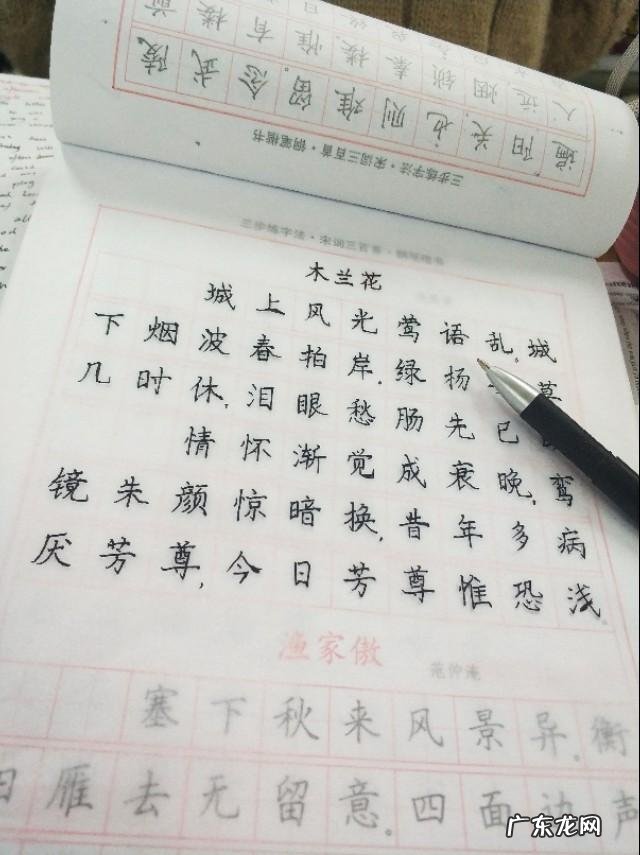 遍阳关。也则难留。念武陵
人远，烟锁秦楼。惟有楼前
三步练字法·宋词三百首·钢笔楷书
三步练字法·宋词三百首·钢笔楷书
木兰花
城上风光莺语乱,城
下烟波春拍岸.绿扬
几时休,泪眼愁肠先已
情怀渐觉成衰晚,鸾
镜朱颜惊暗换,昔年多病
厌芳尊,今日芳尊惟恐浅.
渔家傲
范仲淹
塞下秋来风景异。衡
雁去无留意。四面边声
广东龙网